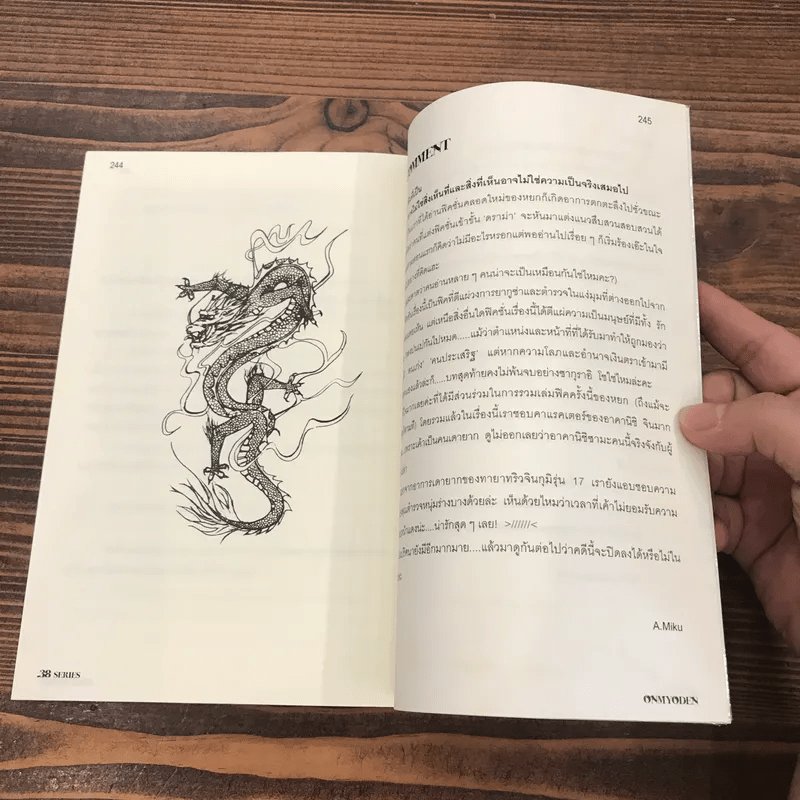 244
38 SERIES
245
OMMENT
ไม่ใช่สิ่งเห็นที่และสิ่งที่เห็นอาจไม่ใช่ความเป็นจริงเสมอไป
ได้อ่านฟิคชั่นคลอดใหม่ของหยกก็เกิดอาการตกตะลึงไปชั่วขณะ
คนที่แต่งฟิคชั่นเข้าขั้น 'ดราม่า' จะหันมาแต่งแนวสืบสวนสอบสวนได้
ตอนแรกก็คิดว่าไม่มีอะไรหรอกแต่พออ่านไปเรื่อย ๆ ก็เริ่มร้องเอ๊ะในใจ
ที่คิดแฮะ
ว่าคนอ่านหลาย ๆ คนน่าจะเป็นเหมือนกันใช่ไหมคะ?)
เรื่องนี้เป็นฟิคที่ตีแผ่วงการยากูซ่าและตำรวจในแง่มุมที่ต่างออกไปจาก
แต่เหนือสิ่งอื่นใดฟิคชั่นเรื่องนี้ได้ตีแผ่ความเป็นมนุษย์ที่มีทั้ง รัก
ปนเปกันไปหมด.....แม้ว่าตำแหน่งและหน้าที่ที่ได้รับมาทำให้ถูกมองว่า
'คนเก่ง' 'คนประเสริฐ' แต่หากความโลภและอำนาจเงินตราเข้ามามี
แล้วล่ะก็.....บทสุดท้ายคงไม่พ้นจบอย่างซากุราอิ โชใช่ไหมล่ะคะ
มากเลยค่ะที่ได้มีส่วนร่วมในการรวมเล่มฟิคครั้งนี้ของหยก (ถึงแม้จะ
โดยรวมแล้วในเรื่องนี้เราชอบคาแรคเตอร์ของอาคานิชิ จินมาก
เพราะเค้าเป็นคนเดายาก ดูไม่ออกเลยว่าอาคานิชิซามะคนนี้จริงจังกับผู้
จากอาการเดายากของทายาทริวจินกุมิรุ่น 17 เรายังแอบชอบความ
ตำรวจหนุ่มร่างบางด้วยล่ะ เห็นด้วยไหมว่าเวลาที่เค้าไม่ยอมรับความ
หน้าแดงน่ะ....น่ารักสุด ๆ เลย! >//////<
ปริศนายังมีอีกมากมาย....แล้วมาดูกันต่อไปว่าคดีนี้จะปิดลงได้หรือไม่ใน
A.Miku
ONMYODEN